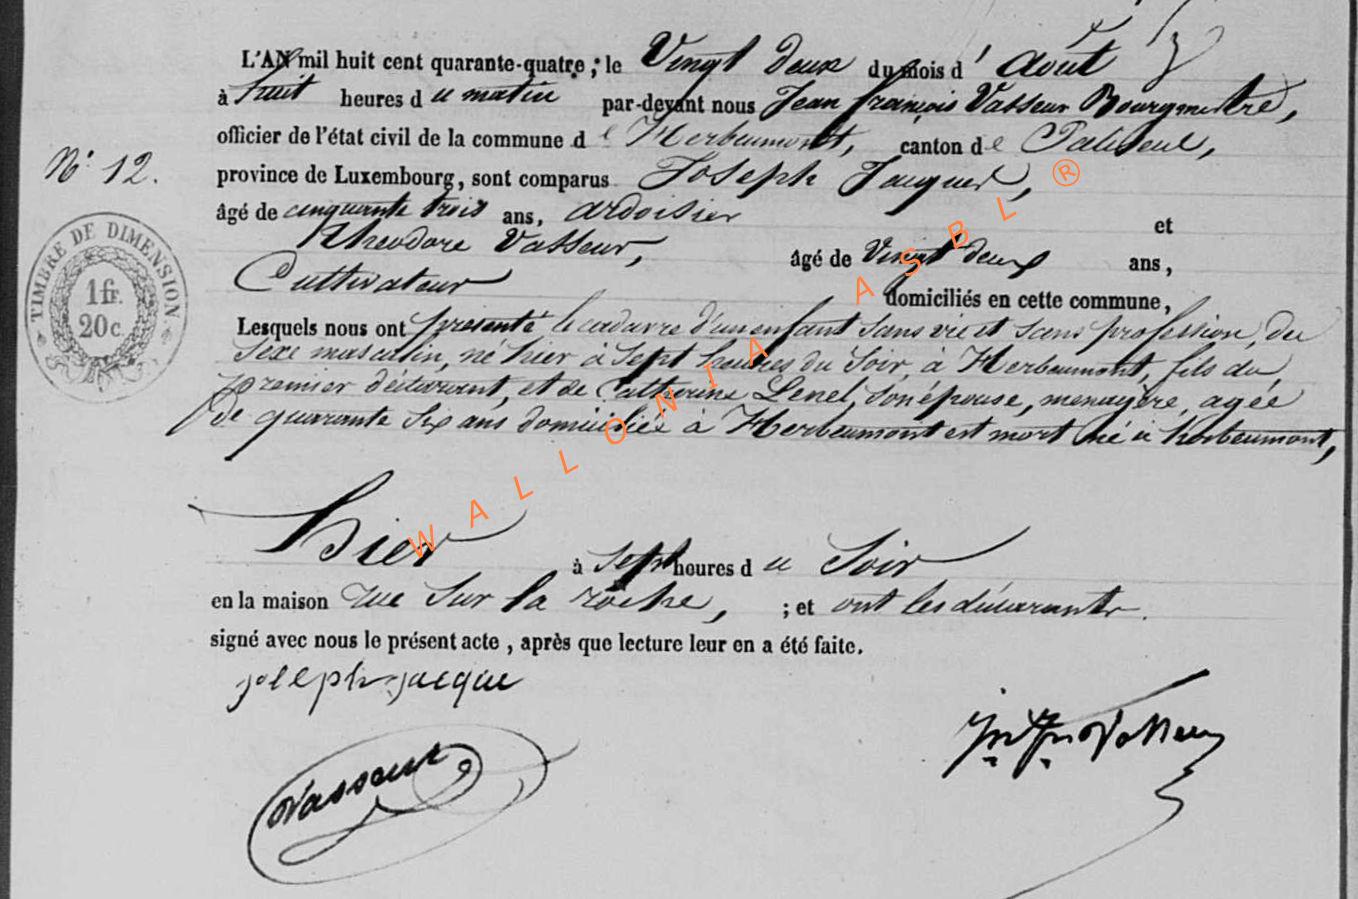 L'AN mil huit cent quarante-quatre, le Vingt Deux du mois d'Août
à huit heures du matin par-devant nous Jean françois Vasseur Bourgmestre,
officier de l'état civil de la commune de Herbeumont, canton de Paliseul,
N° 12.
province de Luxembourg, sont comparus Joseph Jacques, ®
âgé de cinquante trois ans, ardoisier et
Théodore Vasseur, âgé de Vingt deux ans,
Cultivateur domiciliés en cette commune,
TIMBRE DE DIMENSION
1 fr.
20 c.
Lesquels nous ont présenté le cadavre d'un enfant sans vie et sans profession, du
sexe masculin, né hier à Sept heures du Soir, à Herbeumont, fils du
premier déclarant, et de Catherine Lenel, son épouse, menagère, agée
de quarante Six ans domiciliée à Herbeumont est mort né à herbeumont,
WALLONIA ASBL
hier à Sept heures du Soir
en la maison rue Sur la roche, ; et ont les déclarants
signé avec nous le présent acte, après que lecture leur en a été faite.
joseph jacque
Vasseur